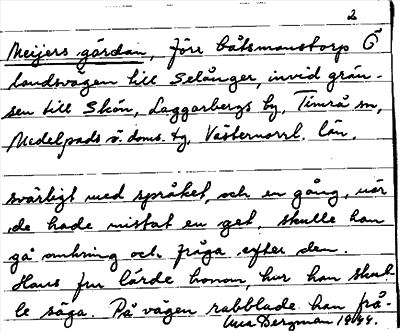 2
Meijers gårdan, förr båtsmanstorp Ö
landsvägen till Selånger, invid grän-
sen till Skön, Laggarbergs by, Timrå sn,
Medelpads ö. doms. tg, Västernorrl. län.
svårligt med språket, och en gång, när
de hade mistat en get, skulle han
gå omkring och fråga efter den.
Hans fru lärde honom, hur han skul-
le säga. På vägen rabblade han frå-
Bergman 1944.